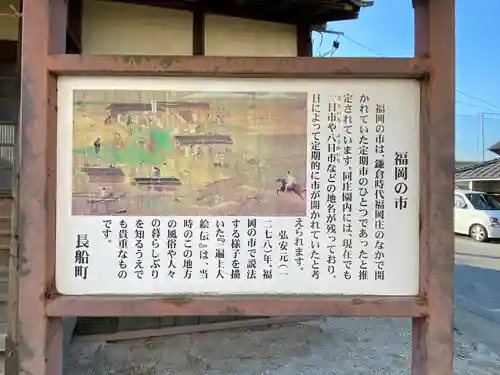 福岡の市
福岡の市は、鎌倉時代福岡庄のなかで開
かれていた定期市のひとつであったと推
定されています。同庄園内には、現在でも
一日市や八日市などの地名が残っており、
日によって定期的に市が開かれていたと考
えられます。
弘安元（一
二七八）年、福
岡の市で説法
する様子を描
いた『一遍上人
絵伝』は、当
時のこの地方
の風俗や人々
の暮らしぶり
を知るうえで
も貴重なもの
です。
長船町